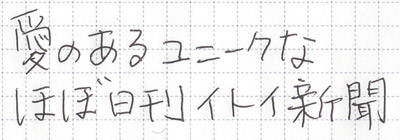 愛のあるユニークな
ほぼ日刊イトイ新聞